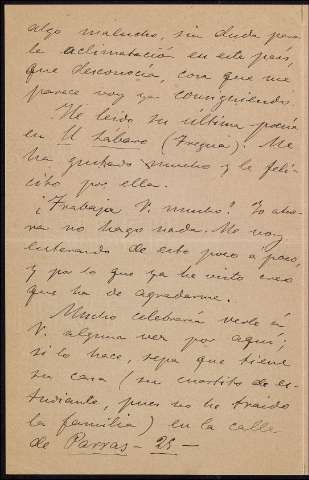 algo malucho, sin duda para
la aclimatación en este país,
que desconocía, cosa que me
parece voy ya consiguiendo.
He leido su última poesía
en El Lábaro (Tregua). Me
ha gustado mucho y le feli-
cito por ella.
¿Trabaja V. mucho? Yo aho-
ra no hago nada. Me voy
enterando de esto poco á poco,
y por lo que ya he visto creo
que ha de agradarme.
Mucho celebraría verle á
V. alguna vez por aquí;
si lo hace, sepa que tiene
su casa (su cuartito de es-
tudiante, pues no he traido
la familia) en la calle
de Parras - 25 -